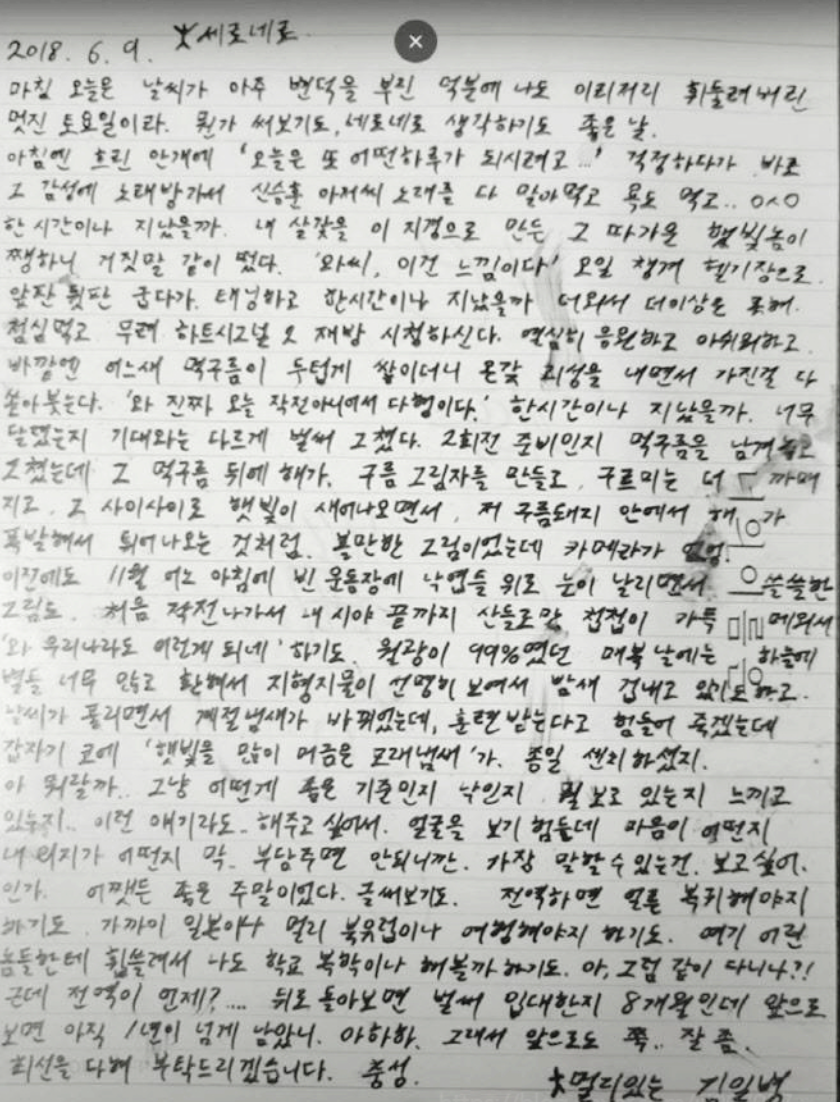 2018. 6. 9. 세로네로
마침 오늘은 날씨가 아주 변덕을 부린 덕분에 나도 이리저리 휘둘려버린
멋진 토요일이라. 뭔가 써보기도, 네로네로 생각하기도 좋은 날.
아침엔 흐린 안개에 '오늘은 또 어떤하루가 되시려고...' 걱정하다가 바로
그 감성에 노래방가서 신승훈 아저씨 노래를 다 말아먹고 욕도 먹고.. ㅇㅅㅇ
한 시간이나 지났을까. 내 살갗을 이 지경으로 만든 그 따가운 햇빛놈이
쨍하니 거짓말 같이 떴다. '와씨, 이건 느낌이다' 오일 챙겨 헬기장으로.
앞판 뒷판 굽다가. 태닝하고 한시간이나 지났을까 더와서 더이상은 못해.
점심먹고 무려 하트시그널 2 재방 시청하신다. 열심히 응원하고 아쉬워하고.
바깥엔 어느새 먹구름이 두텁게 쌓이더니 온갖 괴성을 내면서 가진걸 다
쏟아붓는다. '와 진짜 오늘 작전아니어서 다행이다.' 한시간이나 지났을까. 너무
달랬는지 기대와는 다르게 벌써 그쳤다. 2회전 준비인지 먹구름을 남겨놓고
그쳤는데 그 먹구름 뒤에 해가. 구름 그림자를 만들고, 구르미는 더 까매
지고. 그 사이사이로 햇빛이 새어나오면서. 저 구름돼지 안에서 해가
폭발해서 튀어나오는 것처럼. 볼만한 그림이었는데 카메라가 없엉.
이전에도 11월 어느 아침에 빈 운동장에 낙엽들 위로 눈이 날리면서 쓸쓸한
그림도. 처음 작전나가서 내 시야 끝까지 산들로만 첩첩이 가득 메워서
'와 우리나라도 이렇게 되네' 하기도. 월광이 99%였던 매복날에는 하늘에
별들 너무 많고 환해서 지형지물이 선명히 보여서 밤새 겁내고 있기도 하고.
날씨가 풀리면서 계절냄새가 바뀌었는데, 훈련받는다고 힘들어 죽겠는데
갑자기 코에 '햇빛을 많이 머금은 모래냄새'가. 종일 센치하셨지.
아 뭐랄까.. 그냥 어떤게 좋은 기준인지 낙인지 뭘 보고 있는지 느끼고
있는지.. 이런 얘기라도.. 해주고 싶어서. 얼굴을 보기 힘들데 마음이 어떤지
내 의지가 어떤지 막. 부담주면 안되니깐. 가장 말할수있는건. 보고싶어.
인가. 어쨋든 좋은 주말이었다. 글써보기도. 전역하면 얼른 복귀해야지
하기도. 가까이 일본이나 멀리 북유럽이나 여행해야지 하기도. 여기 어린
놈들한테 휩쓸려서 나도 학교 복학이나 해볼까 하기도. 아, 그럼 같이 다니나?!
근데 전역이 언제?.... 뒤로 돌아보면 벌써 입대한지 8개월인데 앞으로
보면 아직 1년이 넘게 남았니. 아하하. 그래서 앞으로도 쭉.. 잘 좀.
최선을 다해 부탁드리겠습니다. 충성.
멀리있는 김일병
그의 외들의